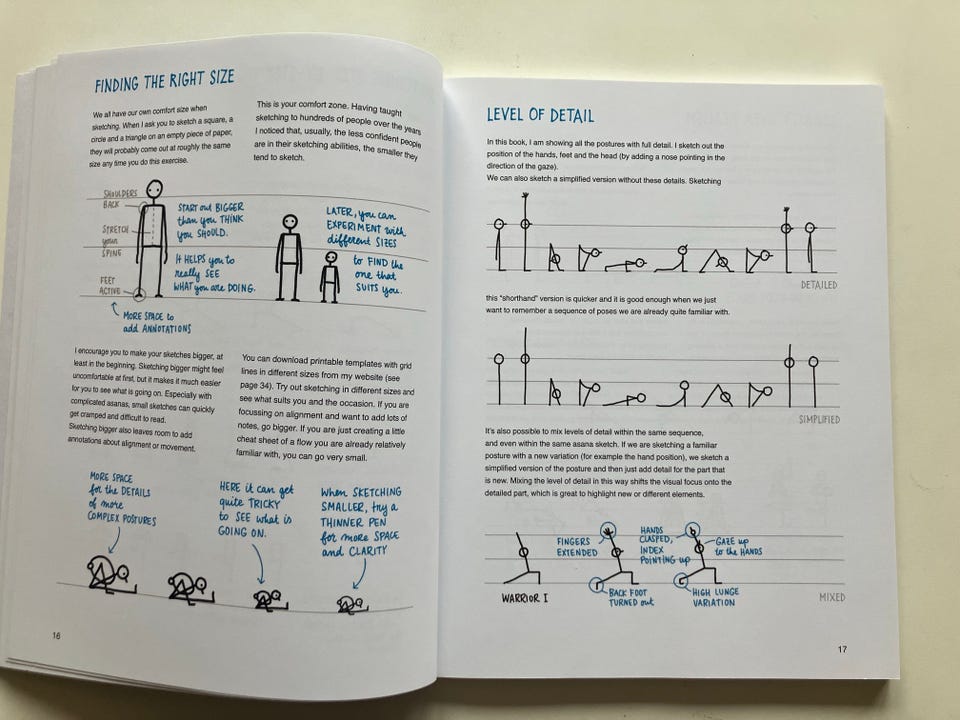 FINDING THE RIGHT SIZE
We all have our own comfort size when
sketching. When I ask you to sketch a square, a
circle and a triangle on an empty piece of paper,
they will probably come out at roughly the same
size any time you do this exercise.
This is your comfort zone. Having taught
sketching to hundreds of people over the years
I noticed that, usually, the less confident people
are in their sketching abilities, the smaller they
tend to sketch.
SHOULDERS
BACK
STRETCH
your
SPING
FEET
ACTIVE
MORE SPACE to
add ANNOTATIONS
START out BIGGER
than you THINK
you SHOULD.
IT HELPS you to
really SEE
WHAT you are DOING.
LATER, you can
EXPERIMENT with
different SIZES
to FIND the
one that
SUITS you.
I encourage you to make your sketches bigger, at
least in the beginning. Sketching bigger might feel
uncomfortable at first, but it makes it much easier
for you to see what is going on. Especially with
complicated asanas, small sketches can quickly
get cramped and difficult to read.
Sketching bigger also leaves room to add
annotations about alignment or movement.
You can download printable templates with grid
lines in different sizes from my website (see
page 34). Try out sketching in different sizes and
see what suits you and the occasion. If you are
focussing on alignment and want to add lots of
notes, go bigger. If you are just creating a little
cheat sheet of a flow you are already relatively
familiar with, you can go very small.
MORE SPACE
for the DETAILS
of more
COMPLEX POSTURES
HERE it can get
quite TRICKY
to SEE what is
GOING ON.
When SKETCHING
SMALLER, try a
THINNER PEN
for more SPACE
and CLARITY
16
LEVEL OF DETAIL
In this book, I am showing all the postures with full detail. I sketch out the
position of the hands, feet and the head (by adding a nose pointing in the
direction of the gaze).
We can also sketch a simplified version without these details. Sketching
DETAILED
this "shorthand" version is quicker and it is good enough when we just
want to remember a sequence of poses we are already quite familiar with.
SIMPLIFIED
It's also possible to mix levels of detail within the same sequence,
and even within the same asana sketch. If we are sketching a familiar
posture with a new variation (for example the hand position), we sketch a
simplified version of the posture and then just add detail for the part that
is new. Mixing the level of detail in this way shifts the visual focus onto the
detailed part, which is great to highlight new or different elements.
WARRIOR I
FINGERS
EXTENDED
BACK FOOT
TURNED out
HANDS
CLASPED,
INDEX
POINTING up
GAZE up
to the HANDS
HIGH LUNGE
VARIATION
MIXED
17